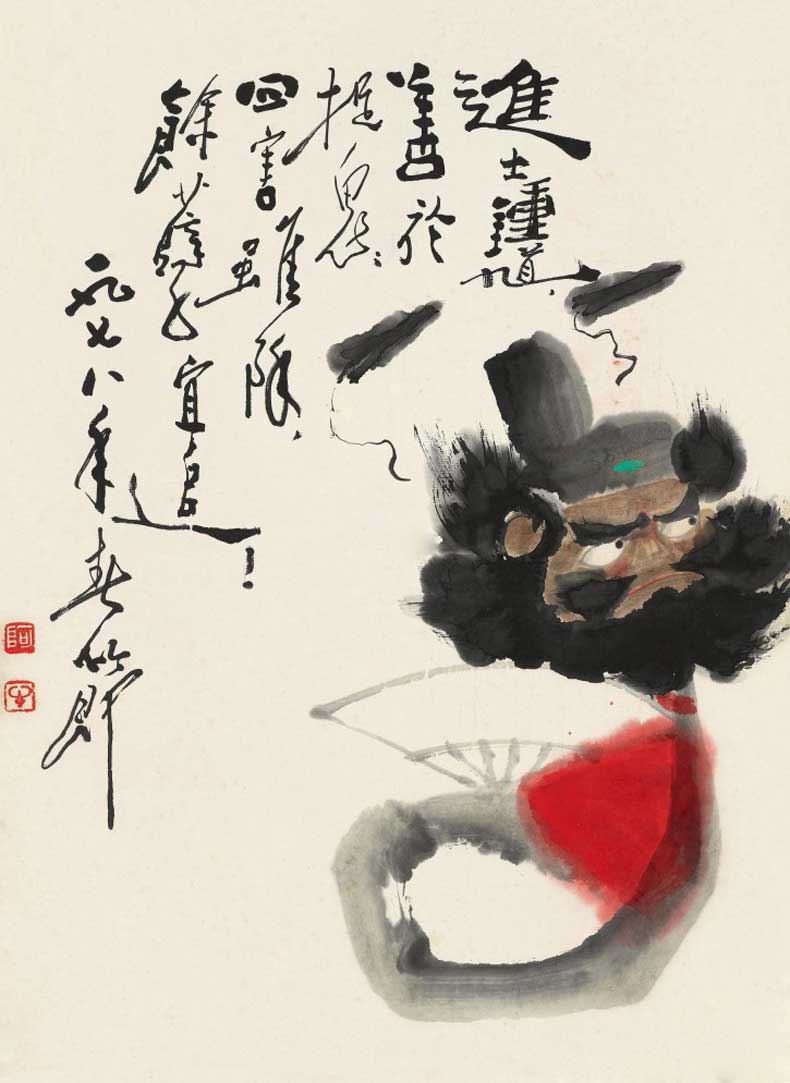 進士鍾馗，
善於
捉鬼；
四害雖除，
餘孽也宜追！
一九七八年春節
阿